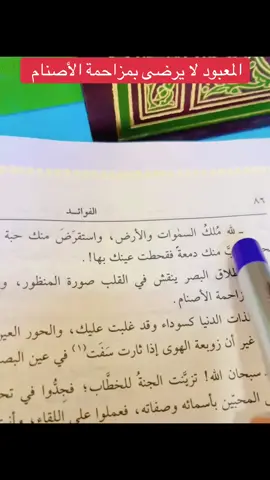 المعبود لا يرضى بمزاحمة الأصنام
٨٦
الفوائد
لله مُلكُ السموات والأرض، واستقرَضَ منك حبة
منك دمعةً فقحطت عينك بها!.
البصر ينقش في القلب صورة المنظور، و
زاحمة الأصنام.
لذات الدنيا كسوداء وقد غلبت عليك، والحور العين
غير أن زوبعة الهوى إذا ثارت سَفَت (١) في عين البص
سبحان الله! تزيَّنت الجنةُ للخطَّاب؛ فجِدُّوا في تح
المحبّين بأسمائه وصفاته، فعملوا على اللقاء،